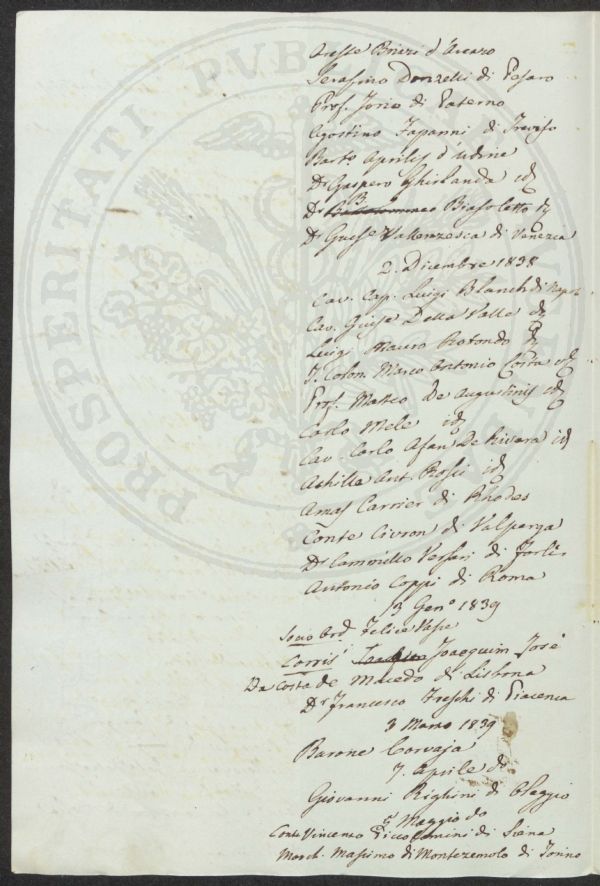 PROSPERITATI PUBLICAE
Oreste Brizi d'Arezzo
Serafino Donzelli di Pesaro
Prof. Jorio di Paterno
Agostino Fapanni di Treviso
Barto Aprilis d'Udine
Dr Gaspero Ghirlanda id
Dr Bartolommeo B. Biasoletto id
Dr Giuse Vallenzasca di Venezia
2. Dicembre 1838
Cav. Cap. Luigi Blanch di Napoli
Cav. Giuse Della Valle id
Luigi Mauro Rotondo id
T. Colon. Marco Antonio Costa id
Prof. Matteo De Augustinis id
Carlo Mele id
Cav. Carlo Afan De Rivera id
Achille Ant. Rossi id
Amas Carrier di Rhodes
Conte Civron di Valperga
Dr Cammillo Versari di Forlì
Antonio Coppi di Roma
13 Geno 1839
Socio Ord. Felice Vasse
Corris. Joaquim José
Da Costa de Macedo di Lisbona
Dr Francesco Freschi di Piacenza
3 Marzo 1839
Barone Corvaja
7. Aprile do
Giovanni Righini di Oleggio
5 Maggio do
Conte Vincenzo Piccolomini di Siena
March. Massimo di Montezemolo di Torino